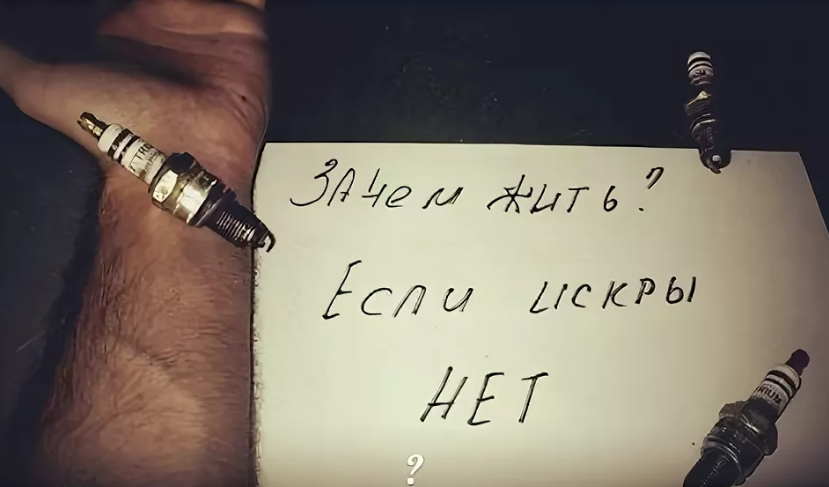 ЗАЧЕМ ЖИТЬ?
ЕСЛИ ИСКРЫ
НЕТ
?